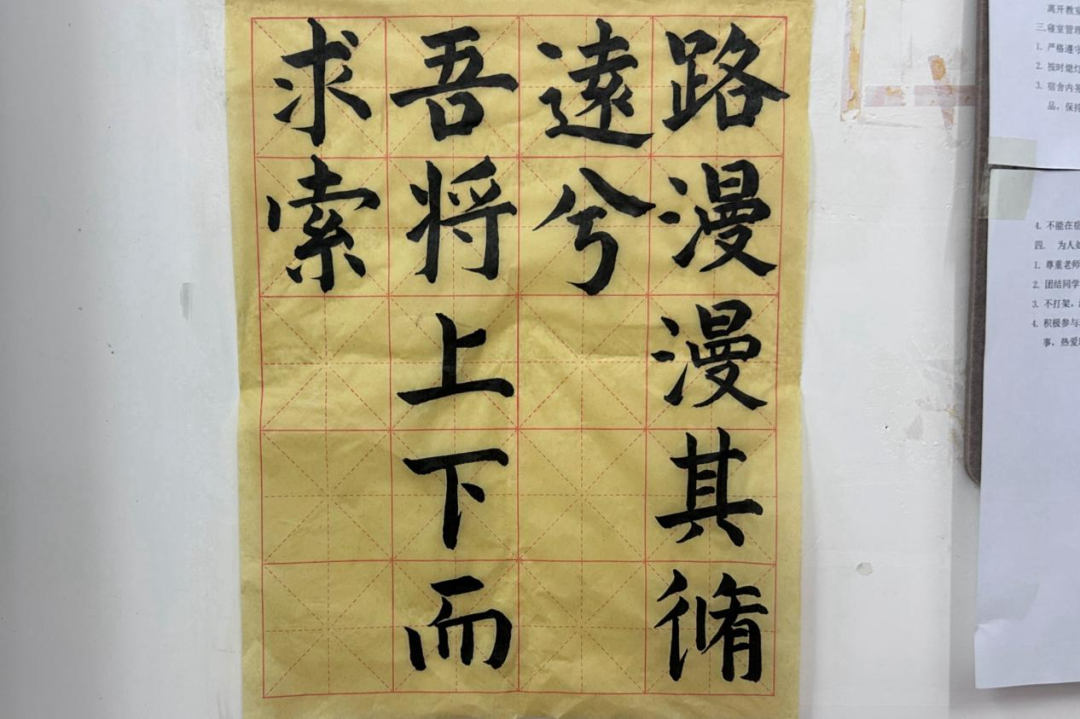 路漫漫其脩
遠兮
吾将上下而
求索
离开教室
三.寝室管理
1. 严格遵守
2. 按时熄灯
3. 宿舍内
品，保持
4. 不能在宿
四. 为人处
1. 尊重老师
2. 团结同学
3. 不打架，
4. 积极参与
事，热爱